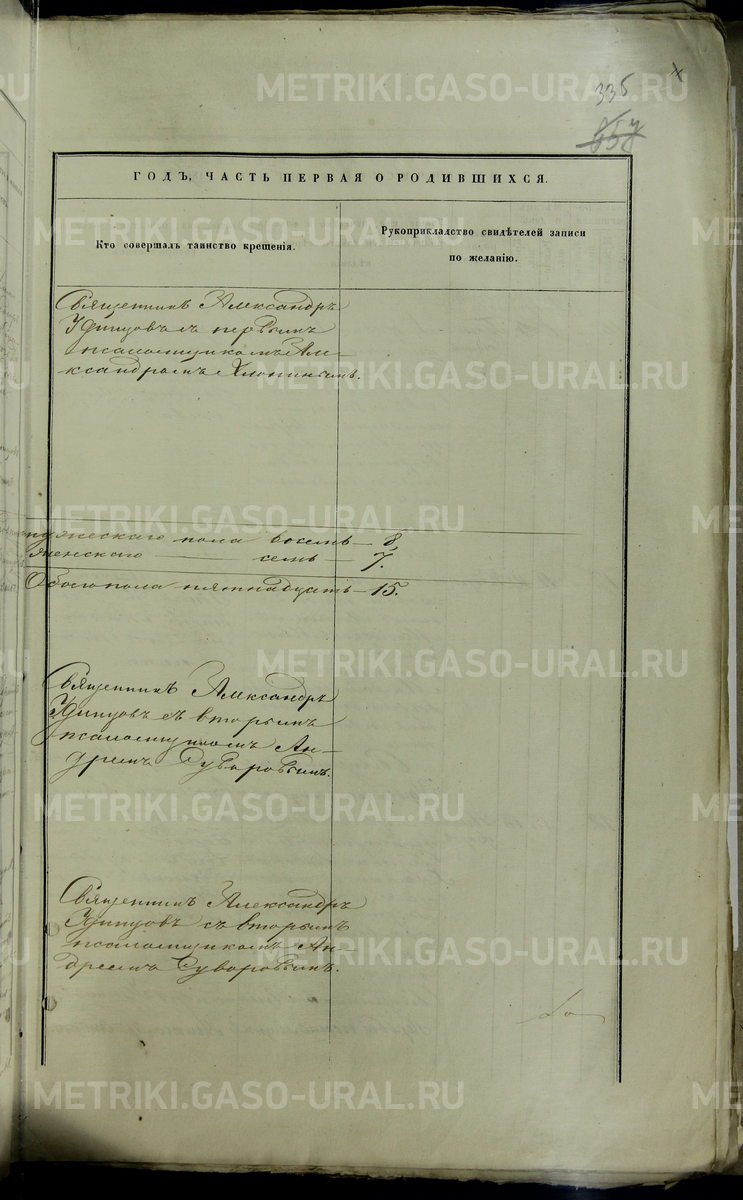 METRIKI.GASO-URAL.RU
335
ГОДЪ, ЧАСТЬ ПЕРВАЯ О РОДИВШИХСЯ.
Кто совершалъ таинство крещенія.
Рукоприкладство свидѣтелей записи
по желанію.
Священникъ Александръ
Удинцовъ съ первымъ
псаломщикомъ Але-
ксандромъ Хлопинымъ.
мужескаго пола восемь — 8,
женскаго — семь — 7.
Обоего пола пятнадцать — 15.
Священникъ Александръ
Удинцовъ съ вторымъ
псаломщикомъ Ан-
дреемъ Суворовымъ.
Священникъ Александръ
Удинцовъ съ вторымъ
псаломщикомъ Ан-
дреемъ Суворовымъ.